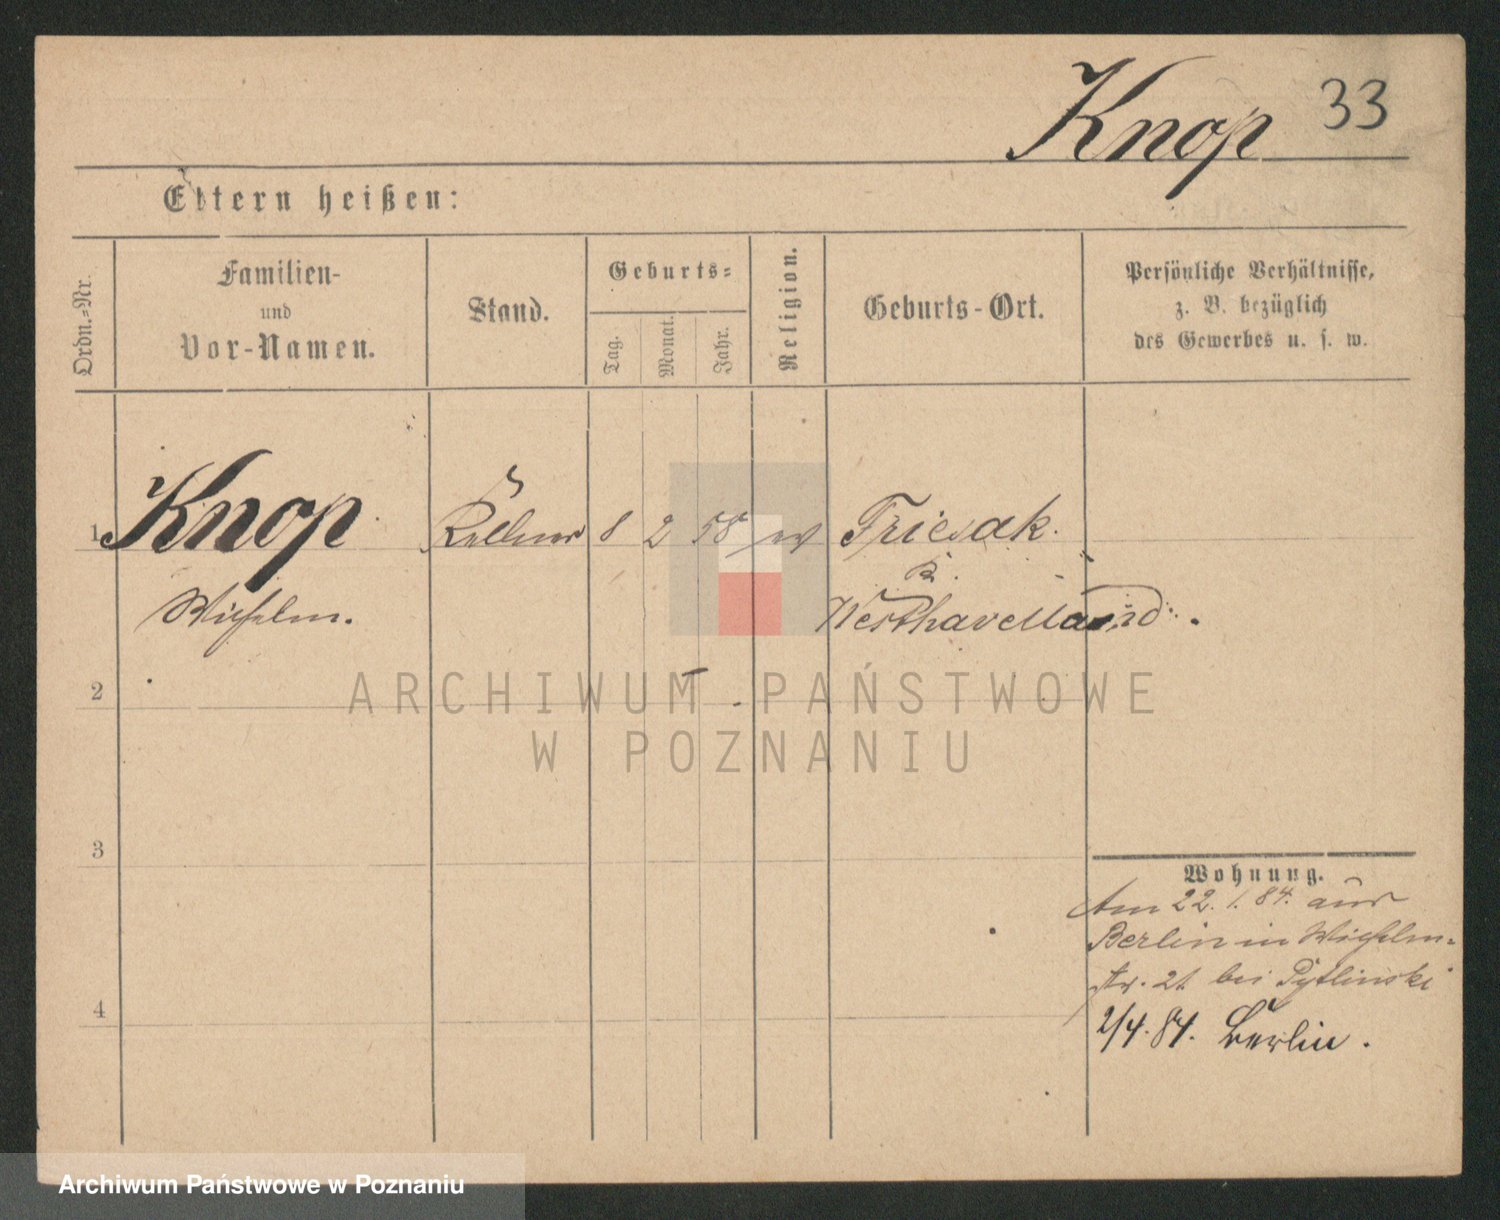 Knop 33
Eltern heißen:
Ordn.-Nr.
Familien-
und
Vor-Namen.
Stand.
Geburts-
Tag.
Monat.
Jahr.
Religion.
Geburts-Ort.
Persönliche Verhältnisse,
z. B. bezüglich
des Gewerbes u. s. w.
1 Knop Kellner 8 2 58 Friesak.
Wilhelm. Westhavelland.
2
3
4
Wohnung.
Am 22. 1. 84. aus
Berlin in Wilhelm-
str. 21 bei Pytlinski
2/4. 84. Berlin.
ARCHIWUM PAŃSTWOWE
W POZNANIU
Archiwum Państwowe w Poznaniu